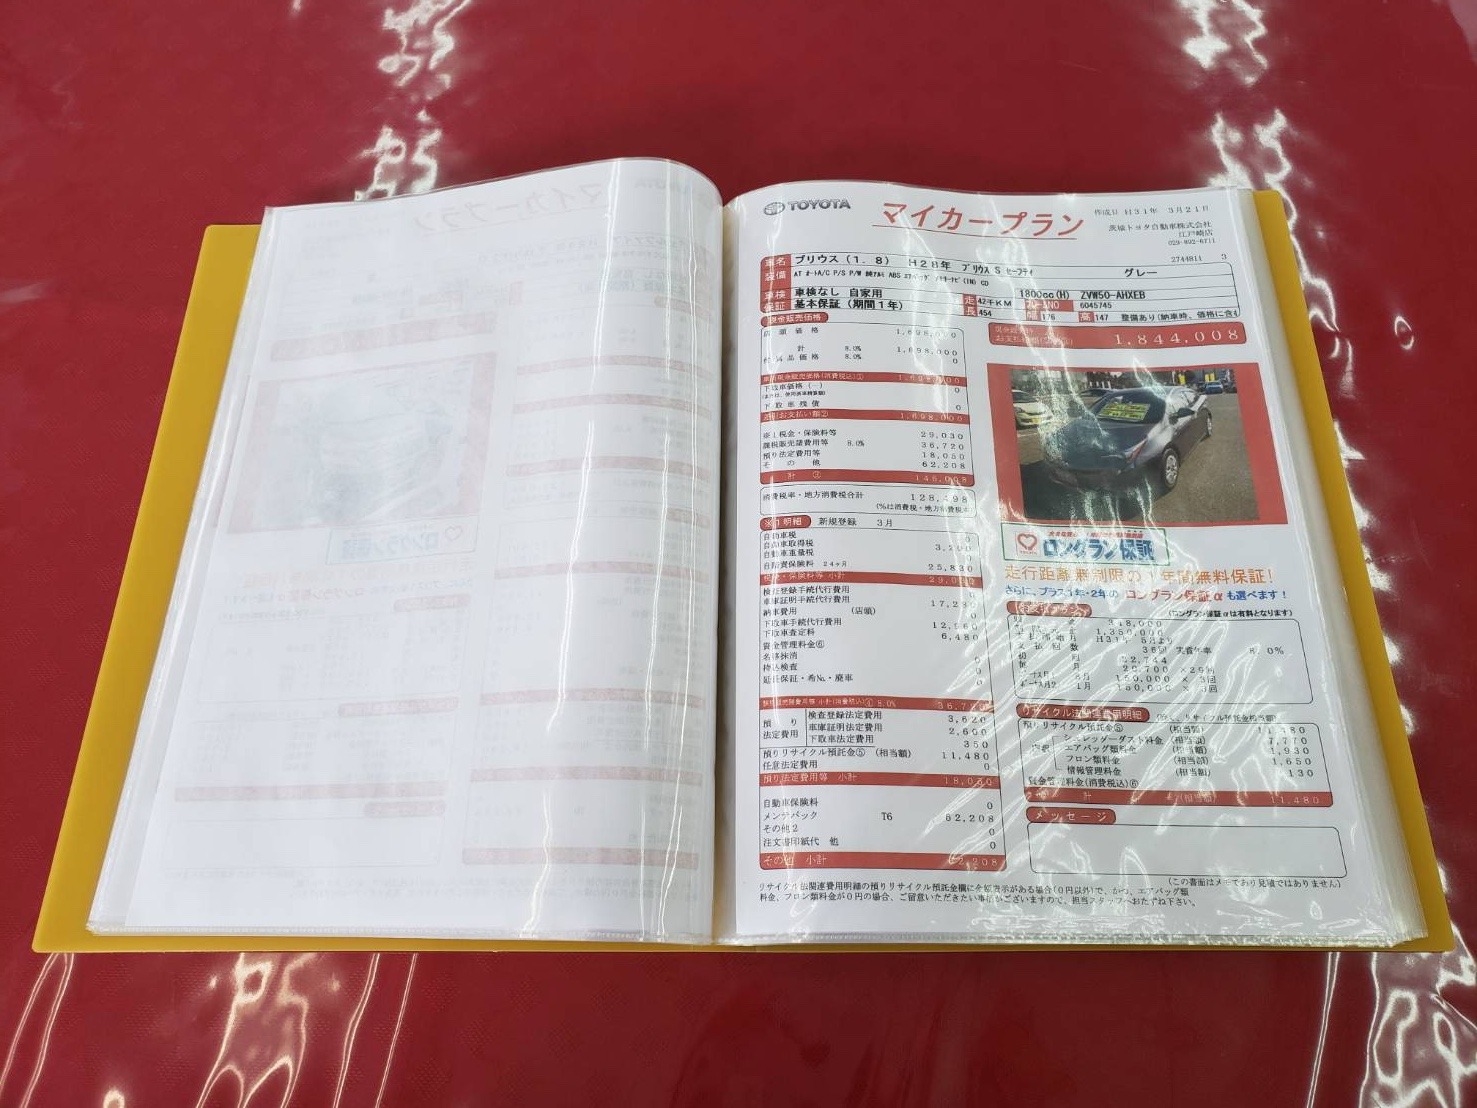 TOYOTA マイカープラン 作成日 H31年 3月21日
茨城トヨタ自動車株式会社
江戸崎店
029-892-6711
2744811 3
車名 プリウス(1.8) H28年 プリウス S セーフティ
装備 グレー
車検 車検なし 自家用 1800cc(H) ZVW50-AHXEB
保証 基本保証(期間1年) 走 42千KM 6045745
長 454 幅 176 高 147 整備あり(納車時、価格に含む
現金販売価格
店頭価格 1,698,000
計 8.0% 1,698,000
付属品価格 8.0% 0
1,698,000
下取車価格(-) 0
下取車残債 0
1,698,000
※1税金・保険料等 29,030
課税販売諸費用等 8.0% 36,720
預り法定費用等 18,050
その他 62,208
計 ③ 146,008
消費税率・地方消費税合計 128,498
(%は消費税・地方消費税
1,844,008
※1明細 新規登録 3月
自動車税 0
自動車取得税 3,200
自動車重量税 0
自賠責保険料 24ヶ月 25,830
税金・保険料等 小計 29,030
検査登録手続代行費用
車庫証明手続代行費用 17,230
納車費用 (店頭) 0
下取車手続代行費用 12,960
下取車査定料 6,480
資金管理料金⑥
名移抹消 0
持込検査 0
延長保証・希No.・廃車 0
36,720
預り 検査登録法定費用 3,620
法定費用 車庫証明法定費用 2,600
下取車法定費用 350
預りリサイクル預託金⑤ (相当額) 11,480
任意法定費用 0
預り法定費用等 小計 18,050
自動車保険料 0
メンテパック T6 62,208
その他2 0
注文書印紙代 他 0
その他 小計 62,208
ロングラン保証
走行距離無制限の1年間無料保証!
さらに、プラス1年・2年の ロングラン保証α も選べます!
(ロングラン保証αは有料となります)
348,000
1,350,000
支払回数 36回 実質年率 8.0%
初回 22,744
8月 150,000 × 3回
1月 150,000 × 3回
リサイクル法関連費用明細
預りリサイクル預託金⑤ (相当額) 11,480
シュレッダーダスト料金 (相当額) 7,770
エアバッグ類料金 (相当額) 1,930
フロン類料金 (相当額) 1,650
情報管理料金 (相当額) 130
資金管理料金(消費税込)⑥
(相当額) 11,480
メッセージ
(この書面はメモであり見積ではありません)
リサイクル法関連費用明細の預りリサイクル預託金欄に金額表示がある場合(0円以外)で、かつ、エアバッグ類
料金、フロン類料金が0円の場合、ご留意いただきたい事項がございますので、担当スタッフへおたずね下さい。